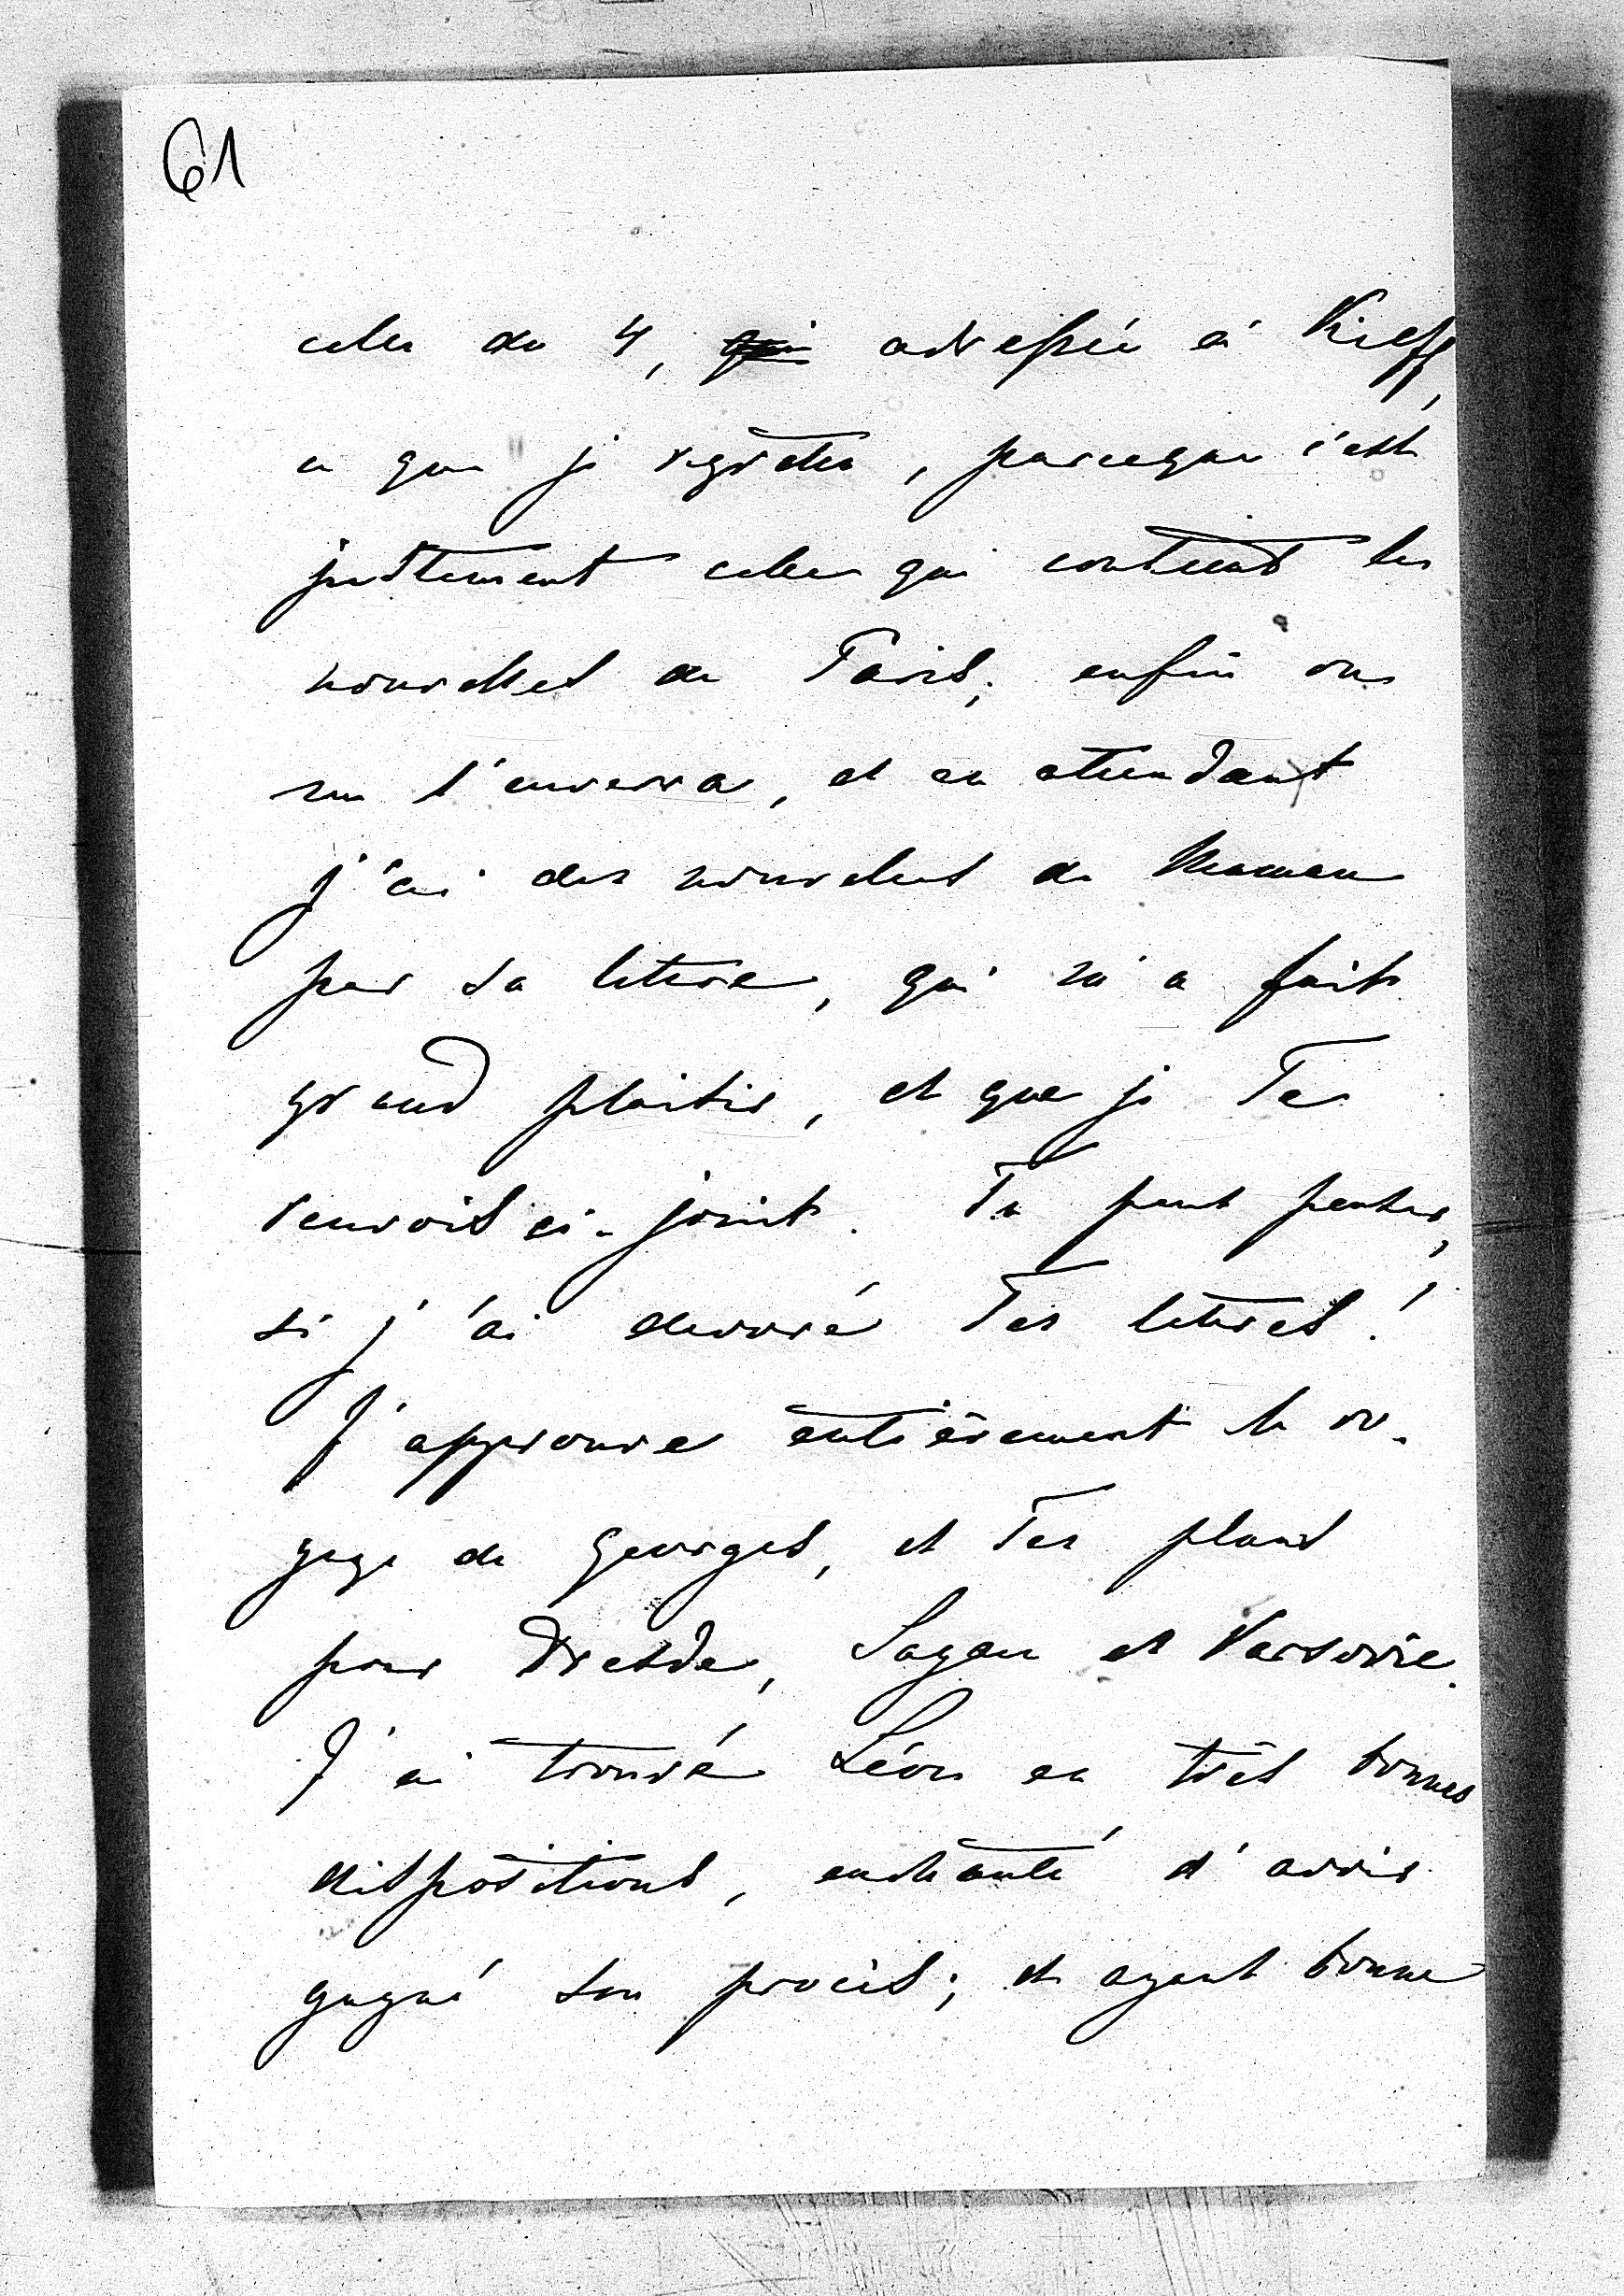 61
celle du 4, qui adressée à Kieff,
ce que je regrette, parceque c'est
justement celle qui contient les
nouvelles de Paris; enfin on
me l'enverra, et en attendant
j'ai des nouvelles de Maman
par sa lettre, qui m'a fait
grand plaisir, et que je Te
renvois ci-joint. Tu peut penser,
si j'ai devoré Tes lettres!
J'approuve entièrement le vo-
yage de Georges, et Tes plans
pour Dresde, Sagan et Varsovie.
J'ai trouvé Léon en très bonnes
dispositions, enchanté d'avoir
gagné son procès; et ayant bonne